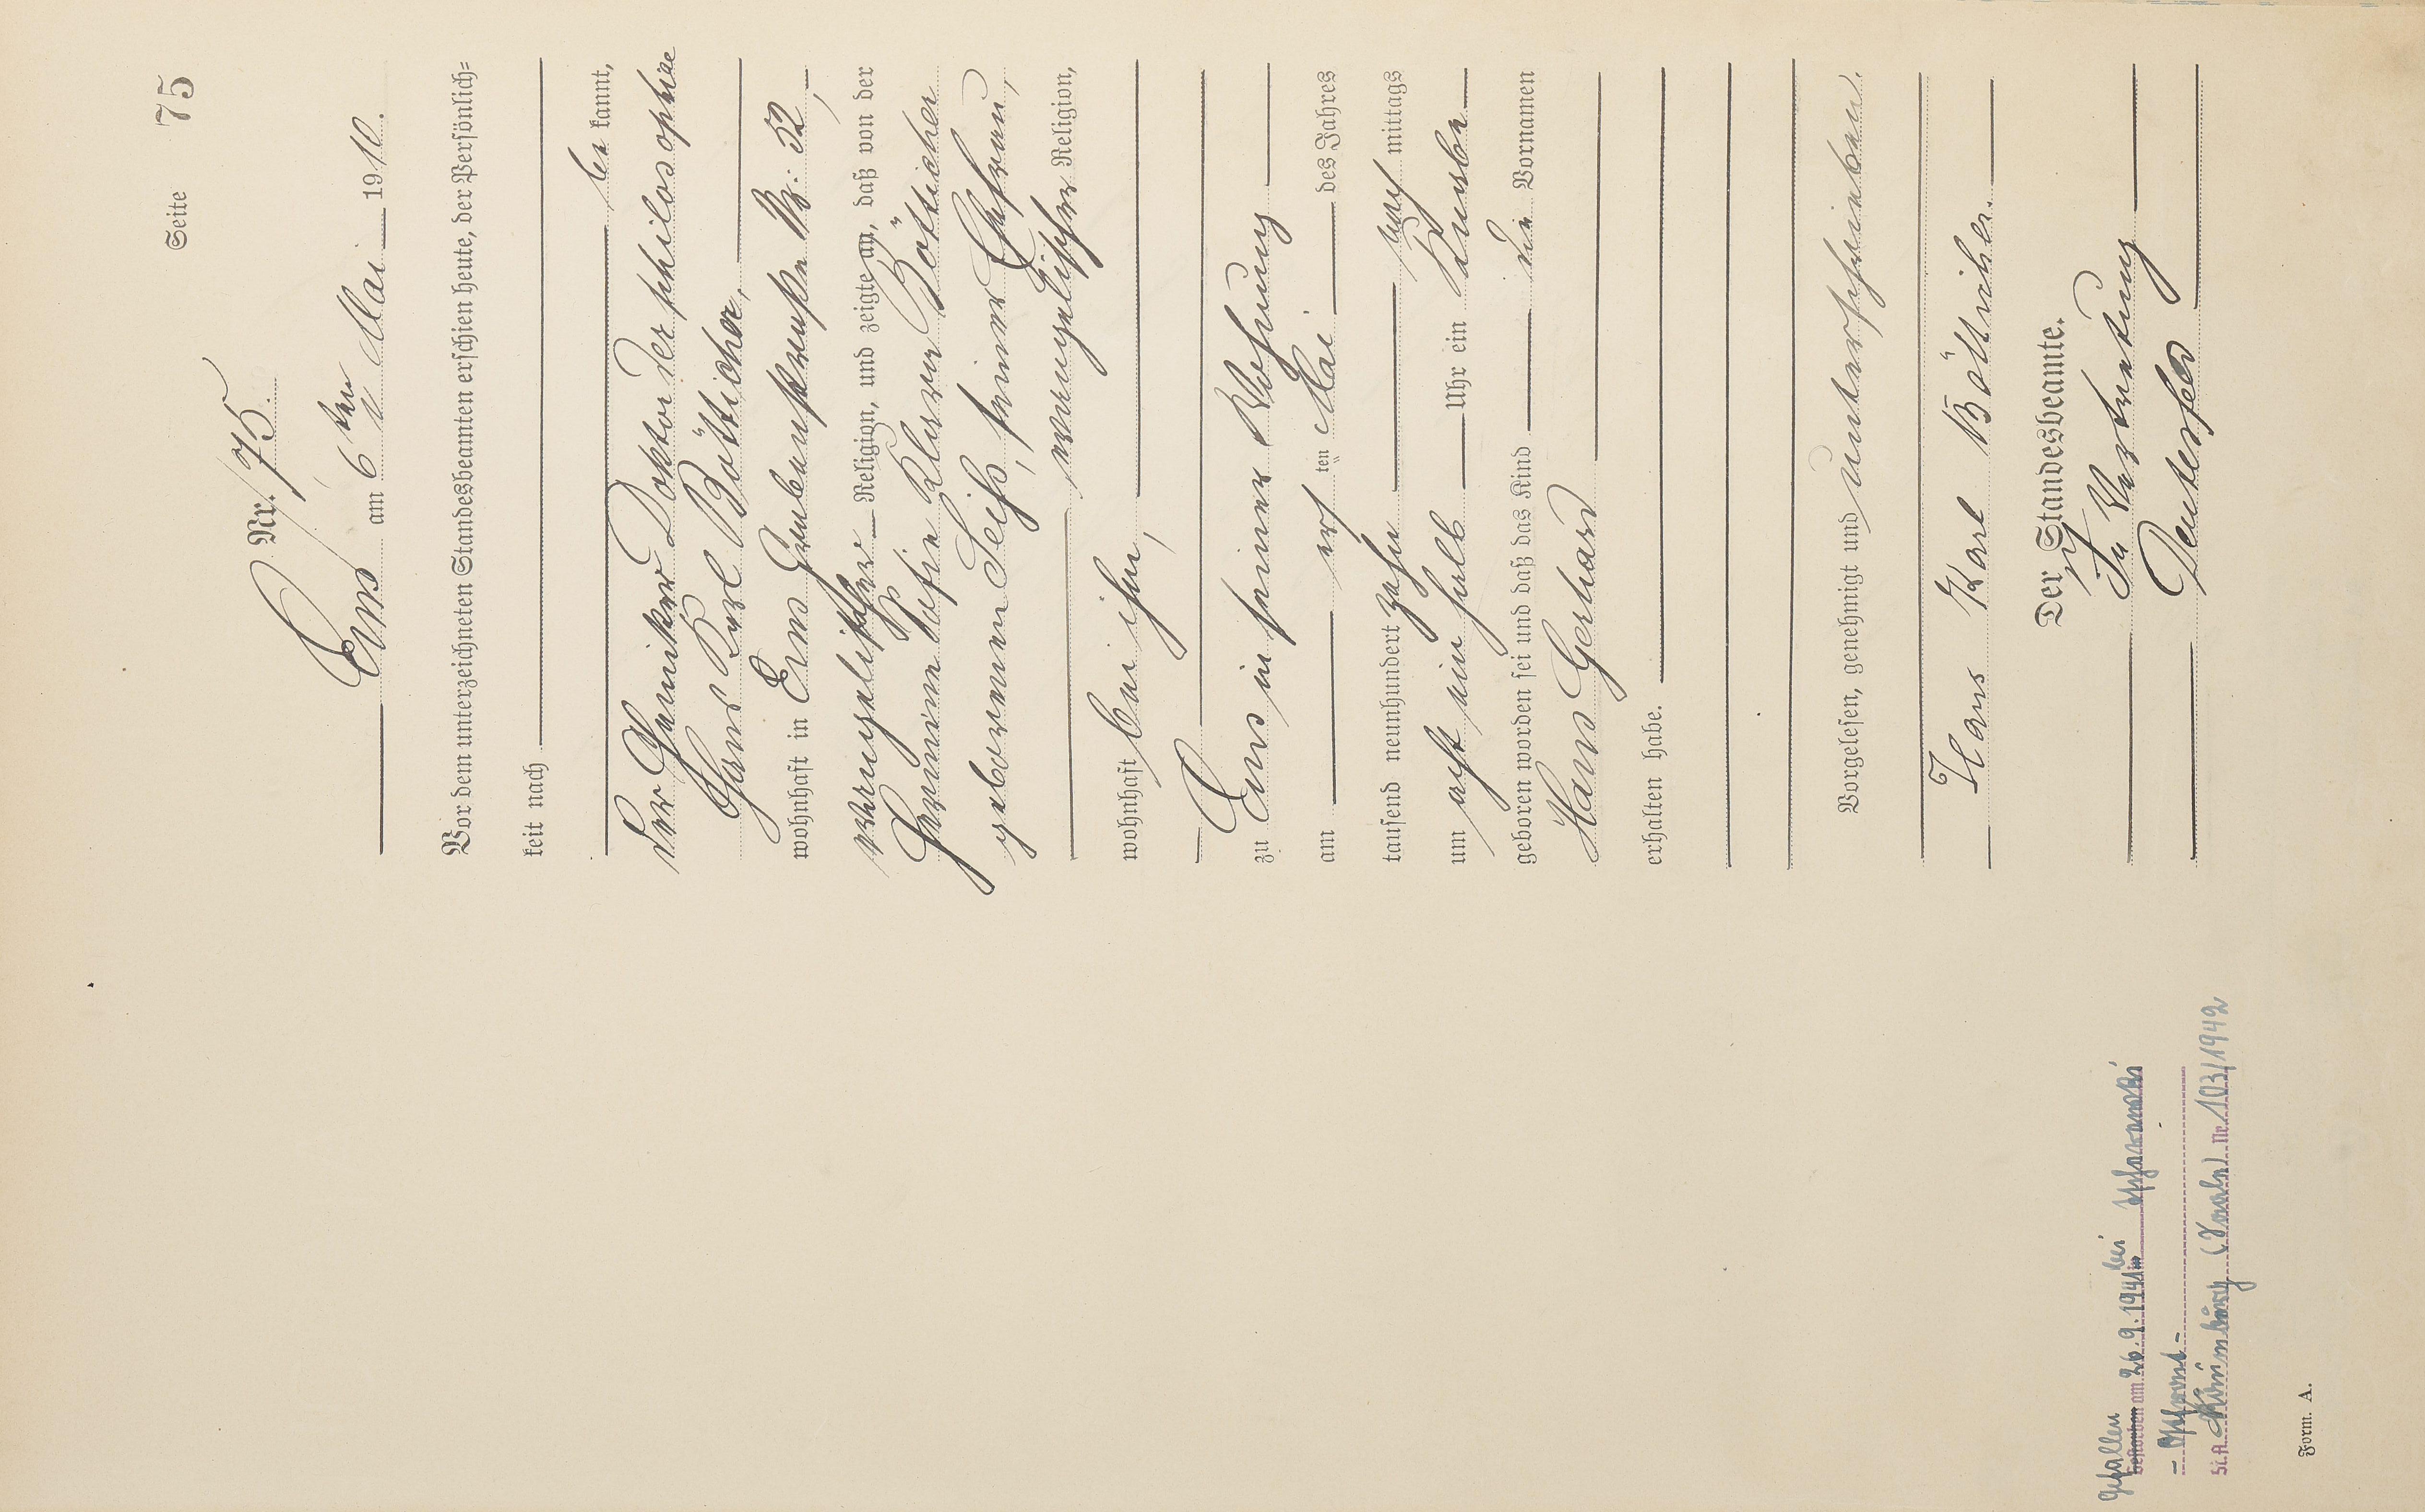 Seite 75
Nr. 75.
Ems am 6ten Mai 1910.
Vor dem unterzeichneten Standesbeamten erschien heute, der Persönlich=
keit nach
be kannt,
der Chemiker Doktor der philosophiae
Hans Karl Bötticher,
wohnhaft in Ems Grabenstraße Nr. 52,
evangelischer Religion, und zeigte an, daß von der
Hermine Sofie Klara Bötticher
geborenen Seiß, seiner Ehefrau,
evangelischer Religion,
wohnhaft bei ihm,
zu Ems in seiner Wohnung
am ersten Mai des Jahres
tausend neunhundert zehn nach mittags
um acht ein halb Uhr ein Knabe
geboren worden sei und daß das Kind die Vornamen
Hans Gerhard
erhalten habe.
Vorgelesen, genehmigt und unterschrieben.
Hans Karl Bötticher.
Der Standesbeamte.
In Vertretung
Gefallen bei
Gestorben am 26.9.1941 in
- Ostfront -
St.A. Naumburg (Saale) Nr. 103/1942
Form. A.